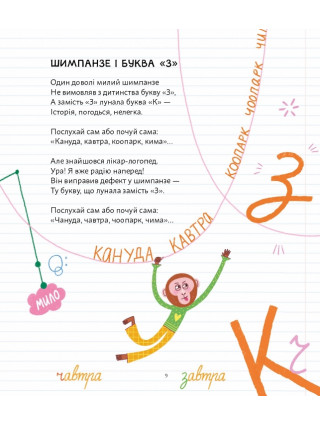 ШИМПАНЗЕ І БУКВА «З»
Один доволі милий шимпанзе
Не вимовляв з дитинства букву «З»,
А замість «З» лунала буква «К» —
Історія, погодься, нелегка.
Послухай сам або почуй сама:
«Кануда, кавтра, коопарк, кима»...
Але знайшовся лікар-логопед.
Ура! Я вже радію наперед!
Він виправив дефект у шимпанзе —
Ту букву, що лунала замість «З».
Послухай сам або почуй сама:
«Чануда, чавтра, чоопарк, чима»...
КООПАРК ЧООПАРК ЧИ
З
КАНУДА КАВТРА
МИЛО
К
ч
чавтра
9
завтра